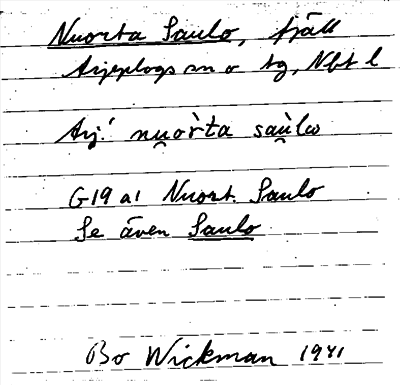 Nuorta Saulo, fjäll
Arjeplogs sn o tg, Nbt l
Arj. nu̯òrta sau̯lo
G19 a1 Nuort. Saulo
Se även Saulo
Bo Wickman 1941